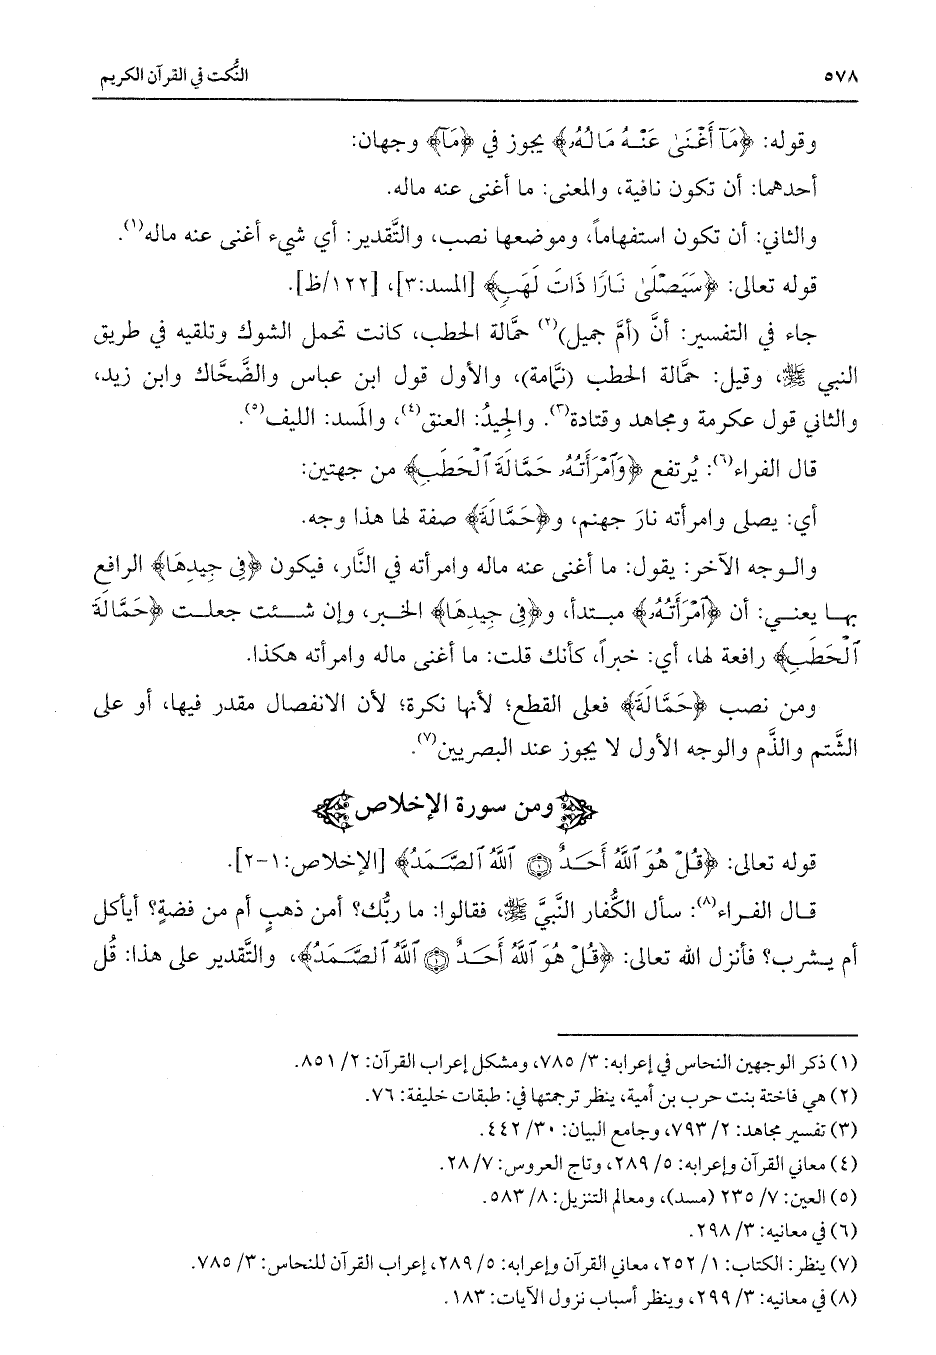 ٥٧٨ النُّكت في القرآن الكريم
وقوله: ﴿مَآ أَغْنَىٰ عَنْهُ مَالُهُۥ﴾ يجوز في ﴿مَآ﴾ وجهان:
أحدهما: أن تكون نافية، والمعنى: ما أغنى عنه ماله.
والثاني: أن تكون استفهاماً، وموضعها نصب، والتَّقدير: أي شيء أغنى عنه ماله(١).
قوله تعالى: ﴿سَيَصْلَىٰ نَارًا ذَاتَ لَهَبٍ﴾ [المسد:٣]، [١٢٢/ظ].
جاء في التفسير: أنَّ (أمَّ جميل)(٢) حمَّالة الحطب، كانت تحمل الشوك وتلقيه في طريق
النبي ﷺ، وقيل: حمَّالة الحطب (نمَّامة)، والأول قول ابن عباس والضَّحَّاك وابن زيد،
والثاني قول عكرمة ومجاهد وقتادة(٣). والجِيدُ: العنق(٤)، والمَسد: الليف(٥).
قال الفراء(٦): يُرتفع ﴿وَٱمْرَأَتُهُۥ حَمَّالَةَ ٱلْحَطَبِ﴾ من جهتين:
أي: يصلى وامرأته نارَ جهنم، و﴿حَمَّالَةَ﴾ صفة لها هذا وجه.
والوجه الآخر: يقول: ما أغنى عنه ماله وامرأته في النَّار، فيكون ﴿فِى جِيدِهَا﴾ الرافع
بها يعني: أن ﴿ٱمْرَأَتُهُۥ﴾ مبتدأ، و﴿فِى جِيدِهَا﴾ الخبر، وإن شئت جعلت ﴿حَمَّالَةَ
ٱلْحَطَبِ﴾ رافعة لها، أي: خبراً، كأنك قلت: ما أغنى ماله وامرأته هكذا.
ومن نصب ﴿حَمَّالَةَ﴾ فعلى القطع؛ لأنها نكرة؛ لأن الانفصال مقدر فيها، أو على
الشَّتم والذَّم والوجه الأول لا يجوز عند البصريين(٧).
ومن سورة الإخلاص
قوله تعالى: ﴿قُلْ هُوَ ٱللَّهُ أَحَدٌ ۝١ ٱللَّهُ ٱلصَّمَدُ﴾ [الإخلاص:١-٢].
قال الفراء(٨): سأل الكُفار النَّبيَّ ﷺ، فقالوا: ما ربُّك؟ أمن ذهبٍ أم من فضةٍ؟ أيأكل
أم يشرب؟ فأنزل الله تعالى: ﴿قُلْ هُوَ ٱللَّهُ أَحَدٌ ۝١ ٱللَّهُ ٱلصَّمَدُ﴾، والتَّقدير على هذا: قُل
(١) ذكر الوجهين النحاس في إعرابه: ٣/ ٧٨٥، ومشكل إعراب القرآن: ٢/ ٨٥١.
(٢) هي فاختة بنت حرب بن أمية، ينظر ترجمتها في: طبقات خليفة: ٧٦.
(٣) تفسير مجاهد: ٢/ ٧٩٣، وجامع البيان: ٣٠/ ٤٤٢.
(٤) معاني القرآن وإعرابه: ٥/ ٢٨٩، وتاج العروس: ٧/ ٢٨.
(٥) العين: ٧/ ٢٣٥ (مسد)، ومعالم التنزيل: ٨/ ٥٨٣.
(٦) في معانيه: ٣/ ٢٩٨.
(٧) ينظر: الكتاب: ١/ ٢٥٢، معاني القرآن وإعرابه: ٥/ ٢٨٩، إعراب القرآن للنحاس: ٣/ ٧٨٥.
(٨) في معانيه: ٣/ ٢٩٩، وينظر أسباب نزول الآيات: ١٨٣.